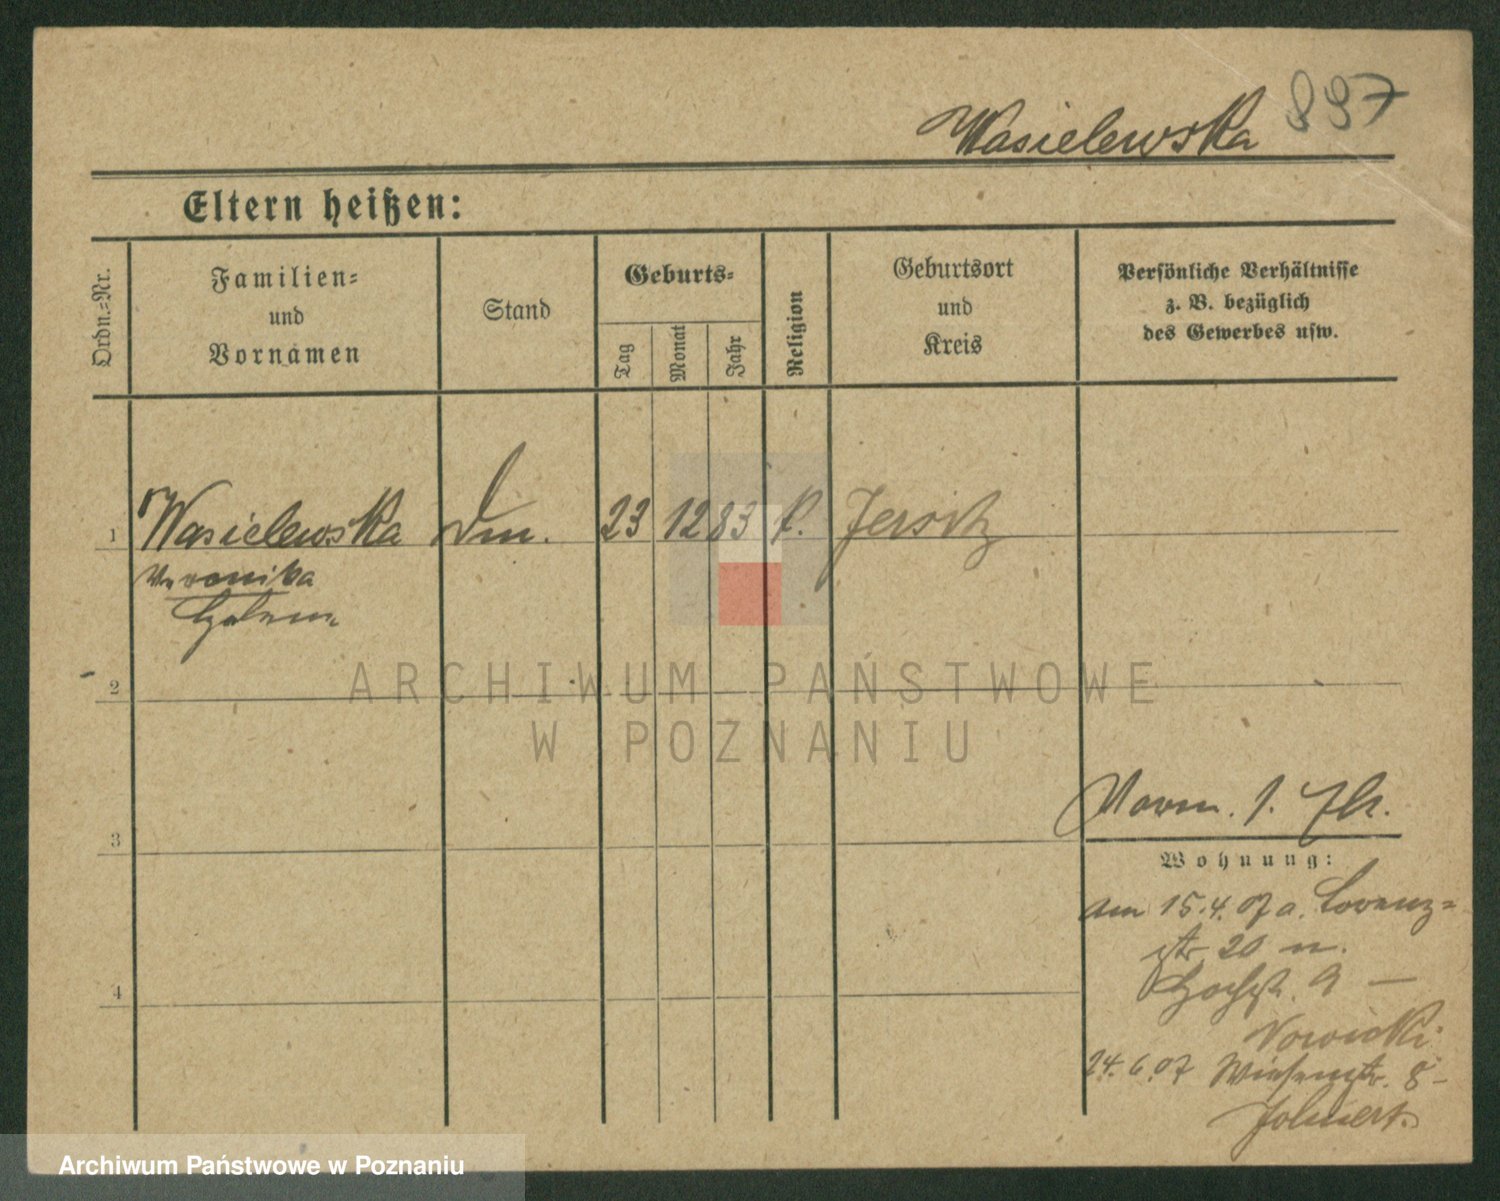 Wasielewska 897
Eltern heißen:
Ordn.=Nr.
Familien=
und
Vornamen
Stand
Geburts=
Tag
Monat
Jahr
Religion
Geburtsort
und
Kreis
Persönliche Verhältnisse
z. B. bezüglich
des Gewerbes usw.
1 Wasielewska 23 12 83 k. Jersitz
Veronika
2
3
4
Wohnung:
am 15.4.07 a. Lorenz=
str 20 n.
Hochstr. 9 —
Nowicki
24.6.07 Wiesenstr. 8 —
ARCHIWUM PAŃSTWOWE
W POZNANIU
Archiwum Państwowe w Poznaniu